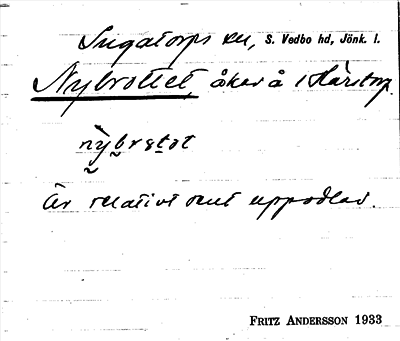 Ingatorps sn, S. Vedbo hd, Jönk. l.
Nybrottet, åker å Hårstorp.
nybrɷtət
Är relativt sent uppodlad.
FRITZ ANDERSSON 1933